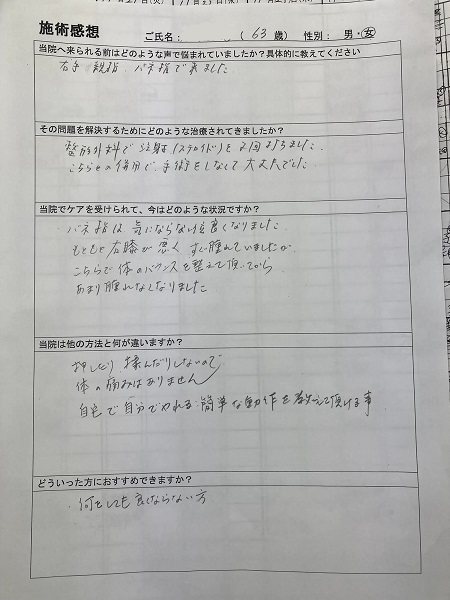 施術感想 ご氏名： （63歳） 性別： 男・女
当院へ来られる前はどのような声で悩まれていましたか？具体的に教えてください
右手 親指 バネ指で来ました
その問題を解決するためにどのような治療されてきましたか？
整形外科で注射（ステロイド）を2回打ちました
こちらとの併用で、手術をしなくて大丈夫でした
当院でケアを受けられて、今はどのような状況ですか？
バネ指は気にならない位良くなりました
もともと右膝が悪く すぐ腫れていましたが
こちらで体のバランスを整えて頂いてから
あまり腫れなくなりました
当院は他の方法と何が違いますか？
押したり 揉んだりしないので
体の痛みはありません
自宅で自分でやれる 簡単な動作を教えて頂ける事
どういった方におすすめできますか？
何をしても良くならない方